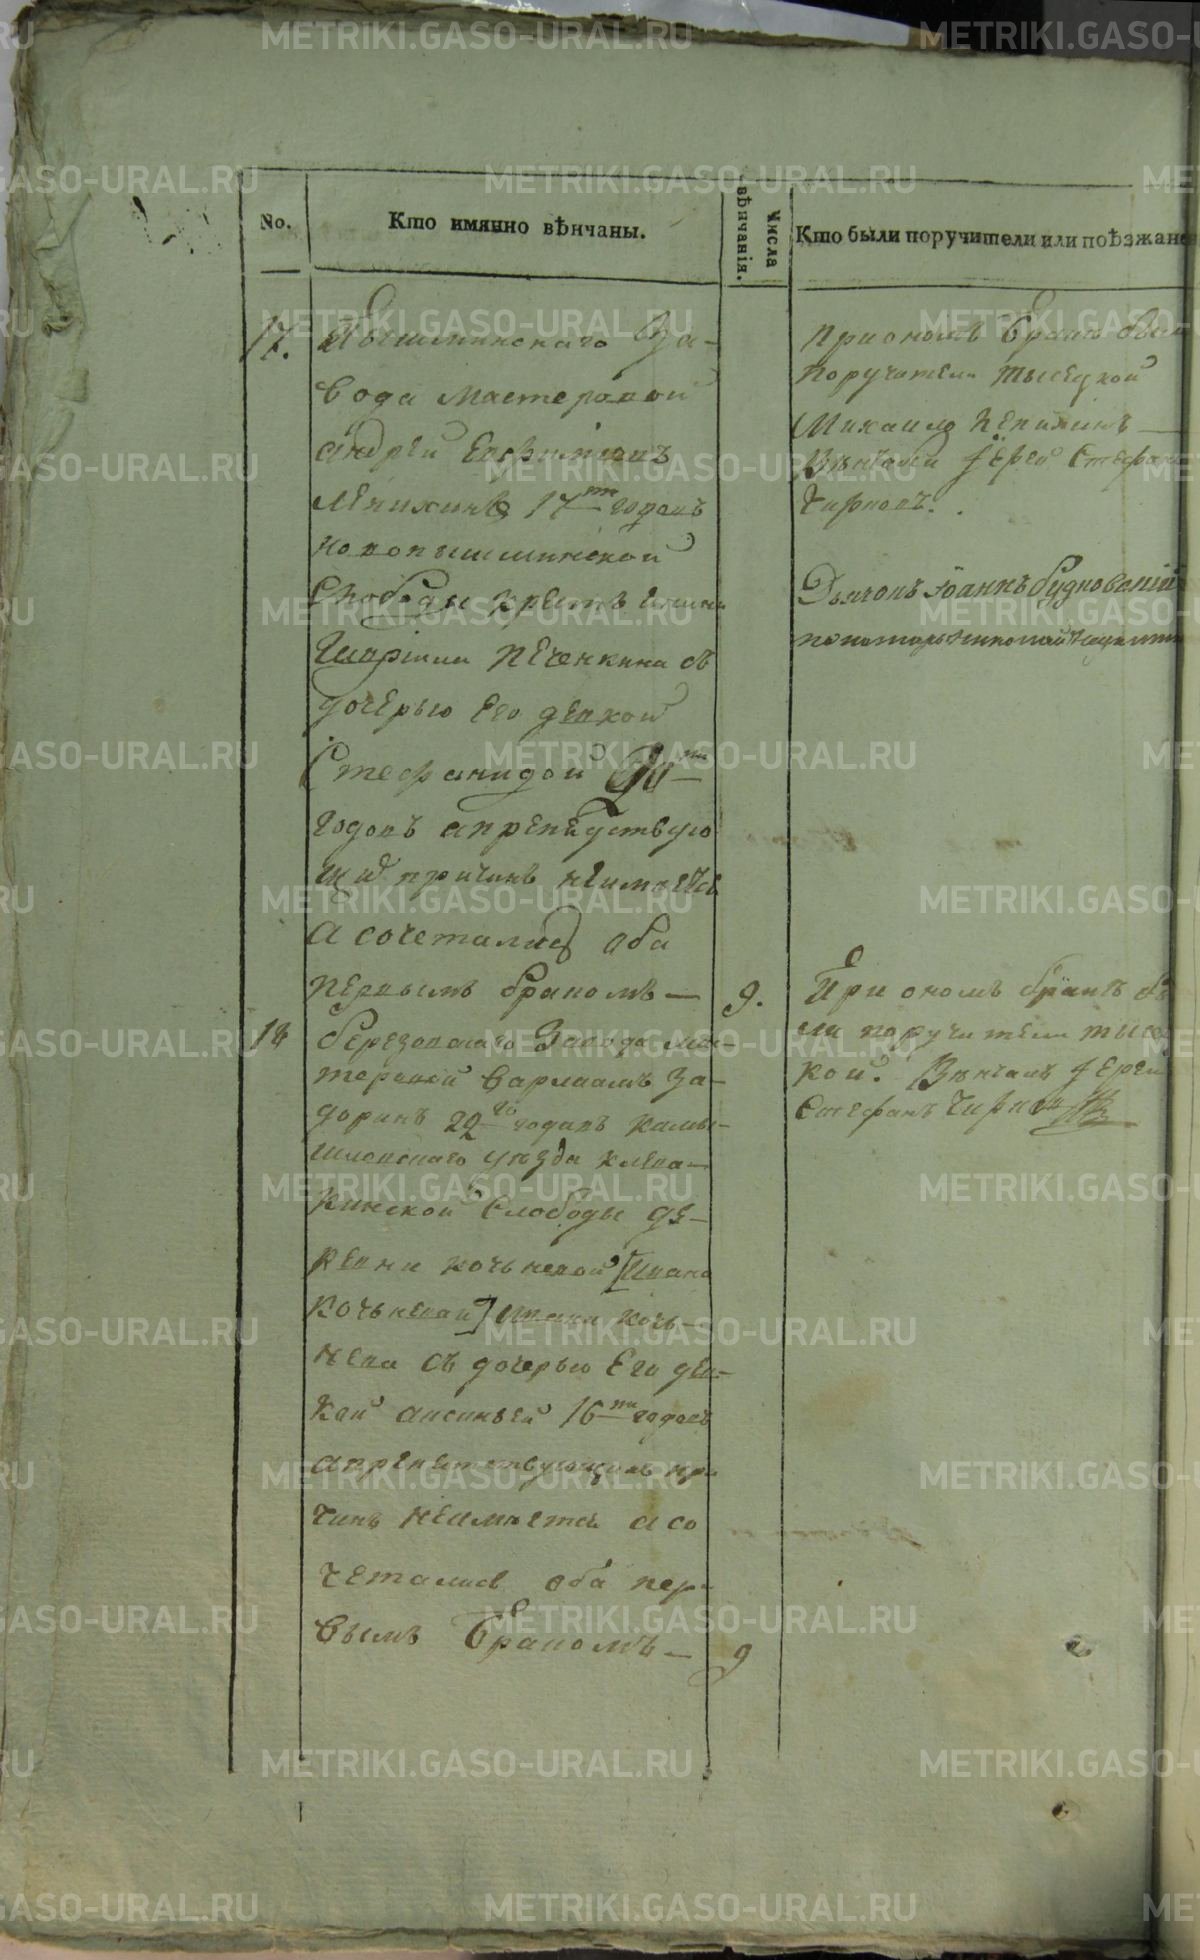 No.
Кто имянно вѣнчаны.
Числа вѣнчанія.
Кто были поручители или поѣзжане
17.
Пышминскаго За-
вода мастеровой
андрей Ефимовъ
17ти годовъ
новопышминской
Слободы крестьянина
Печенкина съ
дочерью Его девкой
Стефанидой 20ти
годовъ а препедствую
щих причинъ неимѣетсѧ
а сочетались оба
первымъ бракомъ —
9.
При ономъ бракѣ бы
поручители тысецкой
Михаило
Вѣнчали Іерей Стефанъ
Чирковъ.
Дьячокъ Іоаннъ Будновский
пономарь николай
18
березовскаго Завода мас-
теровой Варлаамъ За-
доринъ 22го годовъ Камы-
шловского уѣзда клева-
кинской Слободы де-
ревни кочьневой [Ивана
кочьневай] Ивана кочь-
нева съ дочерью Его дев-
кой аксиньей 16ти годовъ
а препетствующихъ при
чинъ Неимѣетсѧ а со
четались оба пер-
вымъ Бракомъ —
9
При ономъ бракѣ бы
ли поручители тысе
кой. Вѣнчалъ Іерей
Стефанъ Чирков
METRIKI.GASO-URAL.RU